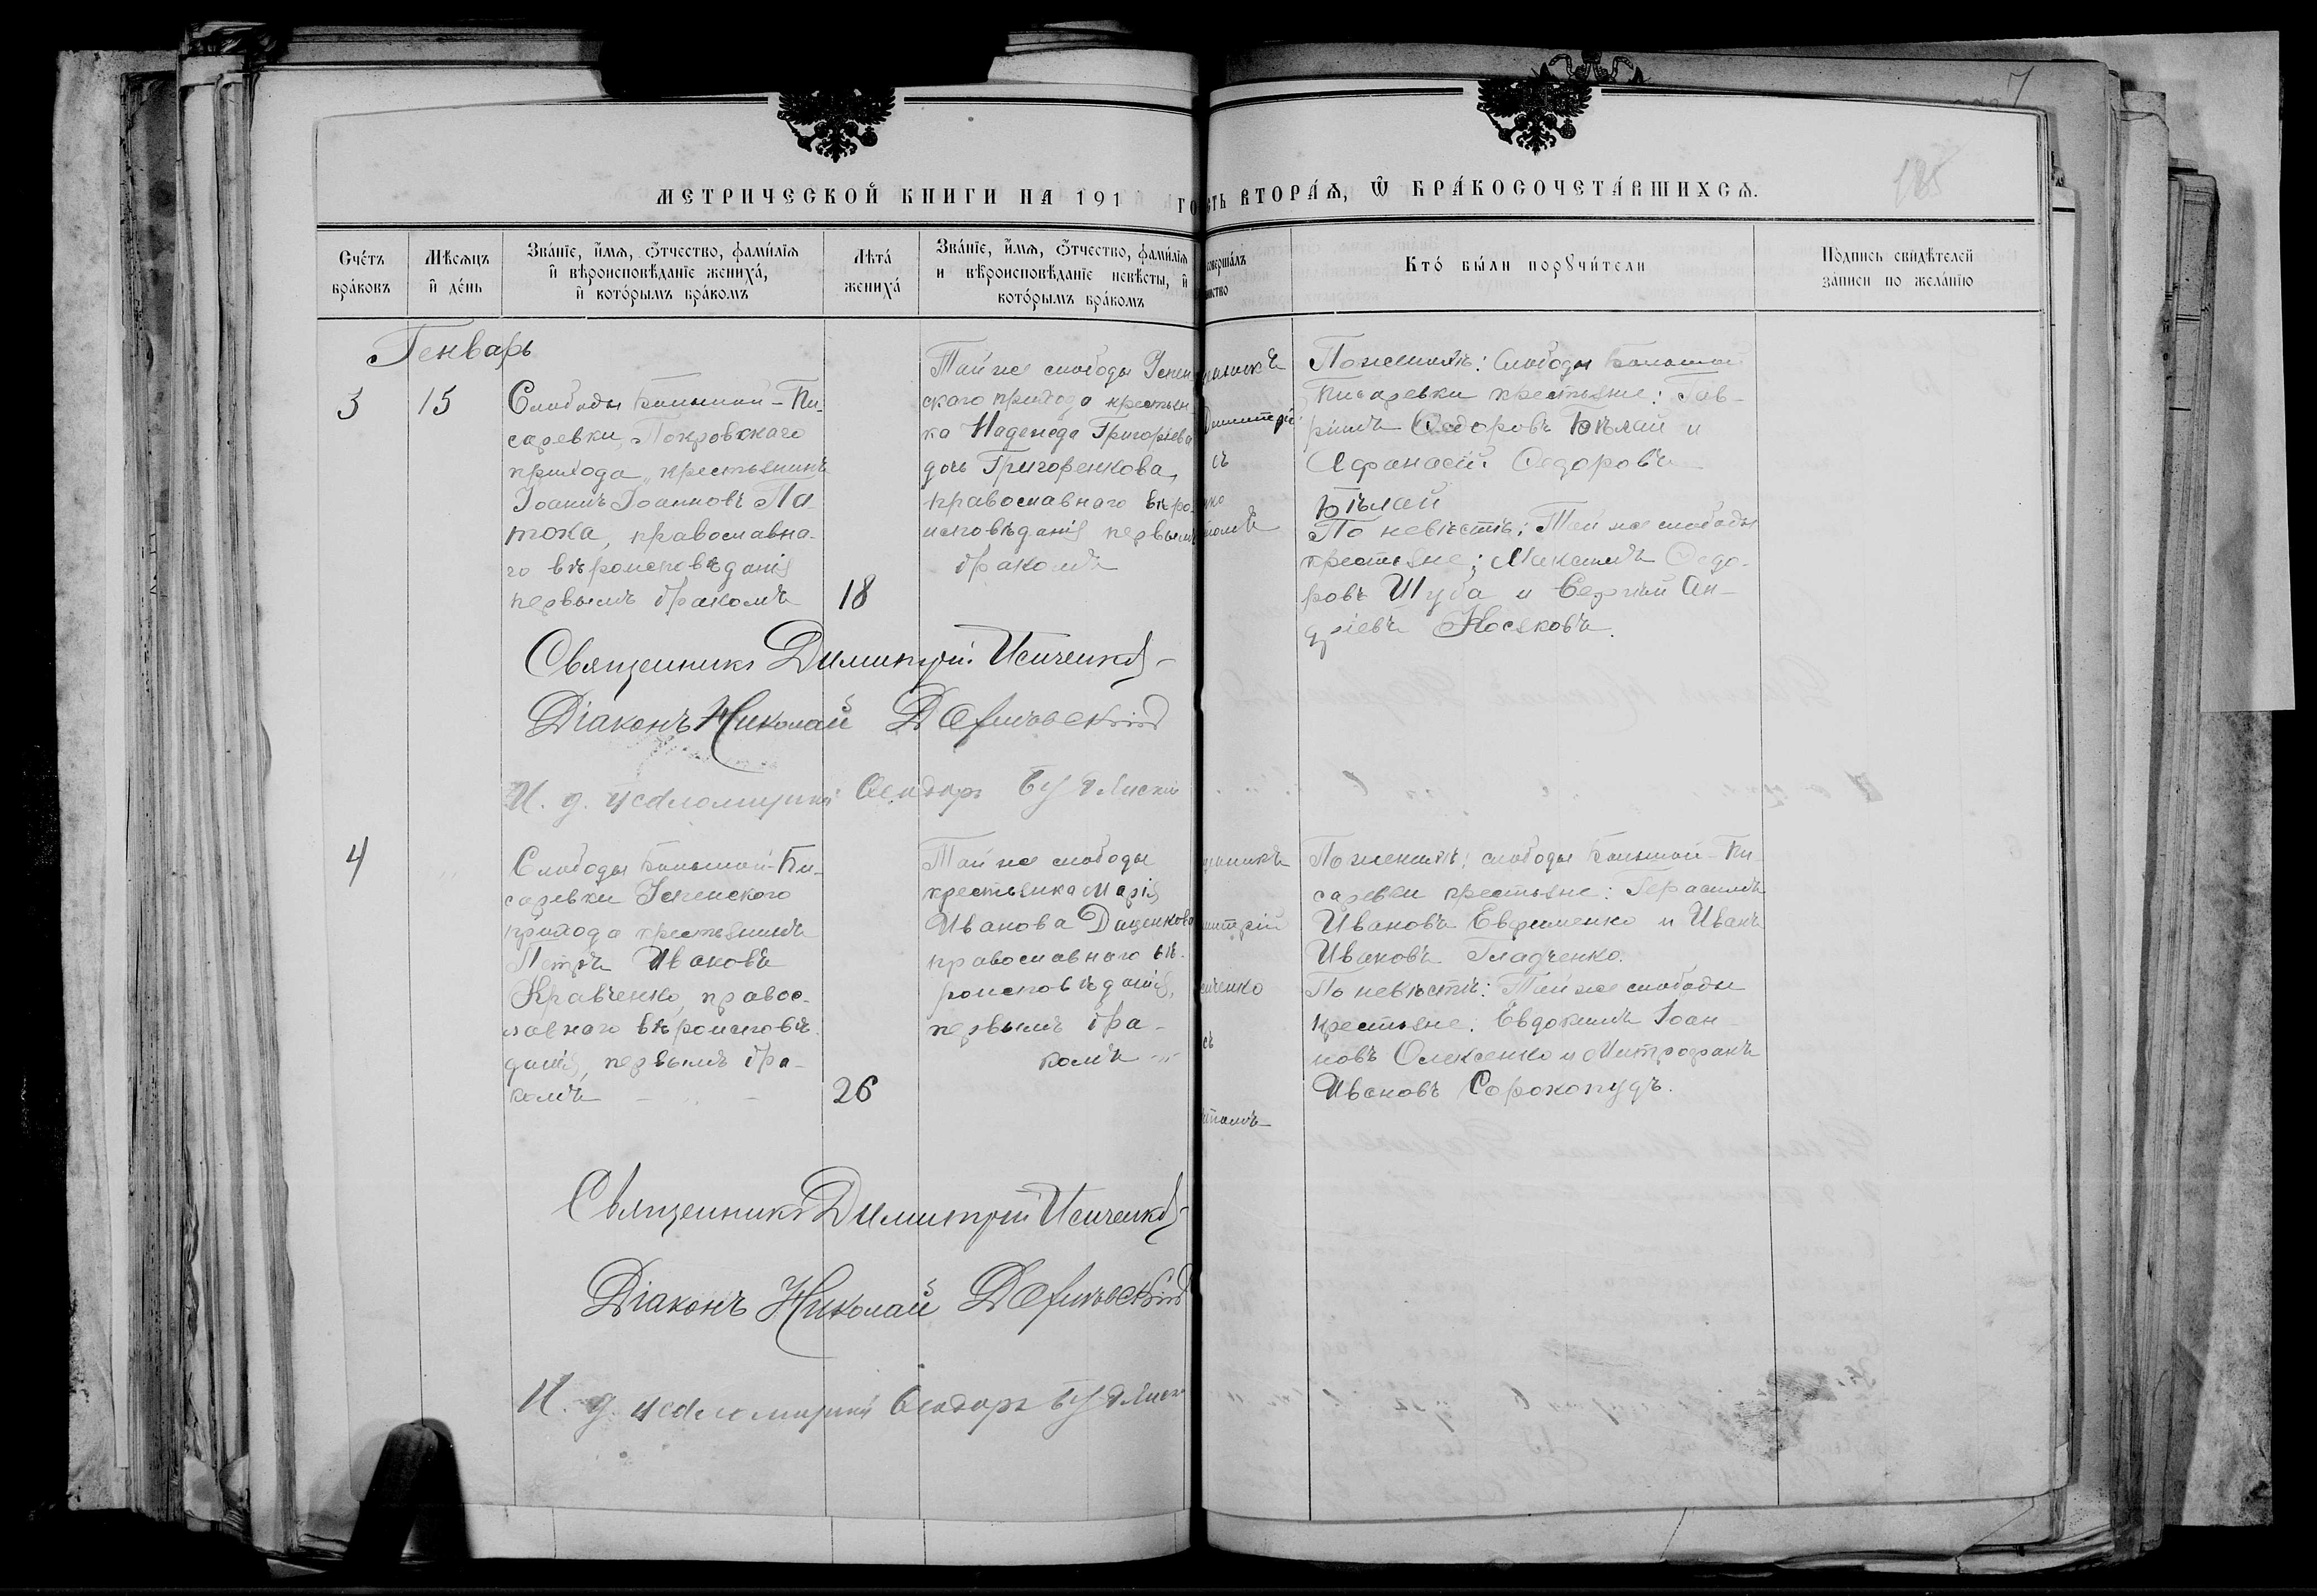 7
185
МЕТРИЧЕСКОЙ КНИГИ НА 191 ГО
СТЬ ВТОРАЯ, Ѿ БРАКОСОЧЕТАВШИХСЯ.
Счетъ браковъ
Мѣсяцъ и день
Званіе, имя, отчество, фамилія
и вѣроисповѣданіе жениха,
и которымъ бракомъ
Лѣта жениха
Званіе, имя, отчество, фамилія
и вѣроисповѣданіе невѣсты, и
которымъ бракомъ
совершалъ
Кто были поручители
Подпись свидѣтелей
записи по желанію
Генварь
3
15
Слободы Большой-Пи-
саревки, Покровскаго
прихода, крестьянинъ
Іоаннъ Іоанновъ Па-
тока, православна-
го вѣроисповѣданія
первымъ бракомъ
18
Той же слободы Успен
скаго прихода крестьян-
ка Надежда Григоріева
дочь Григоренкова,
православнаго вѣро-
исповѣданія первымъ
бракомъ
Димитрій
съ
По женихѣ: слободы Большой
Писаревки крестьяне: Гав-
ріилъ Ѳедоровъ Бѣлай и
Аѳанасій Ѳедоровъ
Бѣлай
По невѣстѣ: Той же слободы
крестьяне: Максимъ Ѳедо-
ровъ Шуба и Сергѣй Ан-
дріевъ Косяковъ.
Священникъ Димитрій Исиченко
Діаконъ Николай
И. д. псаломщика Ѳеодоръ
4
Слободы Большой-Пи-
саревки Успенского
прихода крестьянинъ
Петръ Ивановъ
Кравченко, правос-
лавнаго вѣроисповѣ-
данія, первымъ бра-
комъ
26
Той же слободы
крестьянка Марія
Иванова Даценкова
православнаго вѣ-
роисповѣданія,
первымъ бра-
комъ
митрій
иченко
съ
По женихѣ: слободы Большой-Пи-
саревки крестьяне: Герасимъ
Ивановъ Евфименко и Иванъ
Ивановъ Гладченко.
По невѣстѣ: Той же слободы
крестьяне: Евдокимъ Іоан-
новъ Олексенко и Митрофанъ
Ивановъ Сорокопудъ.
Священникъ Димитрій Исиченко
Діаконъ Николай
И. д. псаломщика Ѳеодоръ